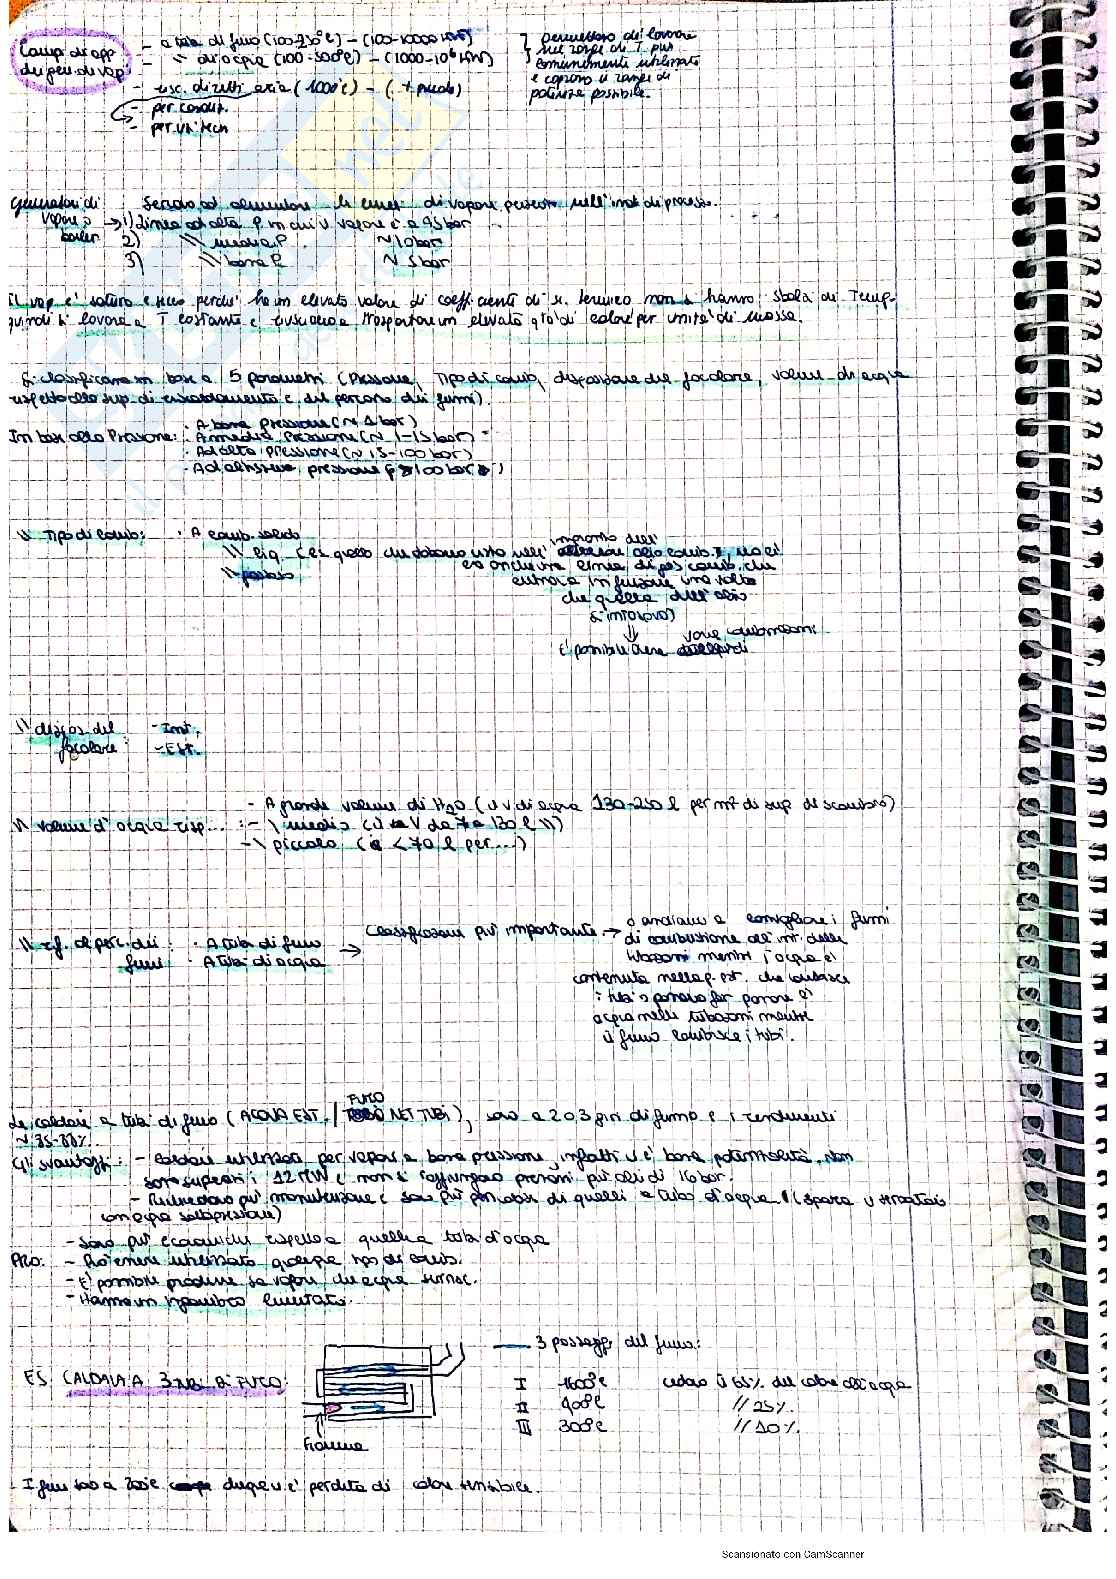 Camp di app
dei gen. di vap
- a tubi di fumo (100-250°C) - (100-10000 kW)
- " di acqua (100-500°C) - (1000-10⁶ kW)
Permettono di lavorare
nei range di T più
comunemente utilizzati
e coprono il range di
potenze possibile.
- risc. diretti aria (1000°C) - (+ piccoli)
- per condiz.
- per un. tecn
Generatori di
vapore o
boiler
Servono ad alimentare le linee di vapore presenti nell'imp di processo.
→ 1) Linea ad alta P in cui il vapore è a 45 bar
2) \\ media P ~ 10 bar
3) \\ bassa P ~ 5 bar
Il vap è saturo e secco perché ha un elevato valore di coefficiente di sc. termico non si hanno sbalzi di Temp.
quindi si lavora a T costante e riusciamo a trasportare un elevato q.tà di calore per unità di massa.
Si classificano in base a 5 parametri (Pressione, Tipo di comb, disposizione del focolare, volume di acqua
rispetto alla sup. di riscaldamento e del percorso dei fumi).
In base alla Pressione: · A bassa pressione (~ 1 bar)
· A media pressione (~ 1-15 bar)
· Ad alta pressione (~ 15-100 bar)
· Ad altissima pressione (> 100 bar)
\\ Tipo di comb: · A comb. solido
\\ liq. (es quello che abbiamo visto nell' impianto dell'
olio comb., ma ci
era anche una linea di gas comb. che
entrava in funzione una volta
che quella dell'olio
si interrompeva)
\\ gassoso
⇓
È possibile avere varie combinazioni
\\ dispos del
focolare:
- Int.
- Est.
\\ volume d'acqua risp...:
- A grande volume di H₂O (il V di acqua 130-250 l per m² di sup di scambio)
- \ medio (il V da 70 a 130 l \\)
- \ piccolo (è < 70 l per ...)
\\ rif. al perc. dei
fumi
· A tubi di fumo
· A tubi di acqua
→ Classificazione più importante → o andiamo a convogliare i fumi
di combustione all'int. delle
tubazioni mentre l'acqua è
contenuta nella p. est. che lambisce
i tubi o possiamo far passare l'
acqua nelle tubazioni mentre
il fumo lambisce i tubi.
Le caldaie a tubi di fumo (ACQUA EST. / FUMO NEI TUBI), sono a 2 o 3 giri di fumo e i rendimenti
~ 85-88%.
Gli svantaggi: - caldaie utilizzate per vapore a bassa pressione, infatti si è bassa potenzialità, non
sono superati i 12 MW e non si raggiungono pressioni più alte di 16 bar.
- Richiedono più manutenzione e sono più pericolosi di quelli a tubo d'acqua (spazio v serbatoio
con acqua sottopressione)
PRO:
- Sono più economiche rispetto a quelle a tubi d'acqua
- Può essere utilizzato qualsiasi tipo di comb.
- È possibile produrre sia vapore che acqua surrisc.
- Hanno un ingombro limitato.
ES. CALDAIA A 3 GIRI DI FUMO:
Fiamma
3 passaggi del fumo:
I 1600°C cedono il 65% del calore all'acqua
II 400°C // 25%
III 300°C // 10%
- I fumi sono a 200°C dunque c'è perdita di calore sensibile.
Scansionato con CamScanner